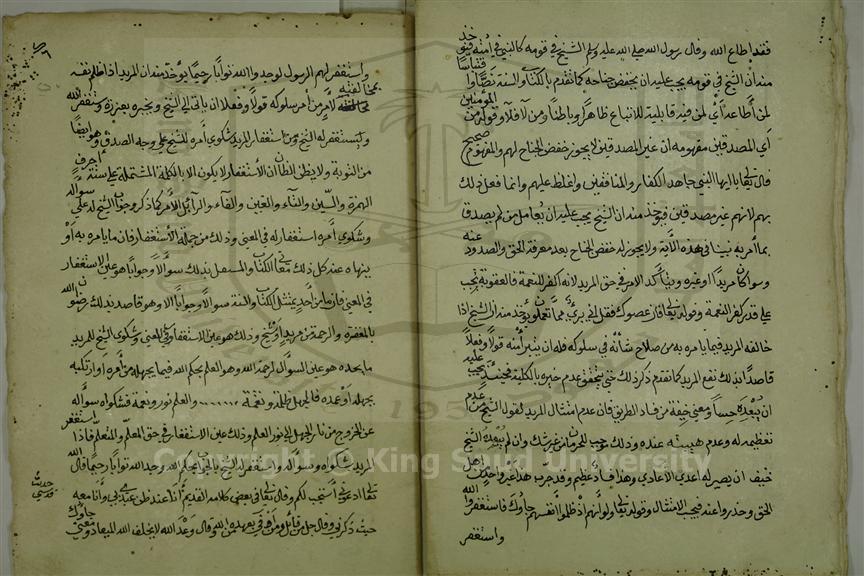 فقد اطاع الله وقال رسول الله صلى الله عليه وسلم الشيخ في قومه كالنبي في أمته فيؤخذ
منه ان الشيخ في قومه يجب عليه ان يخفض جناحه كما تقدم بالكتاب والسنة نصا وقياسا
لمن أطاعه أي لمن فيه قابلية للاتباع ظاهرا وباطنا ومن لا فلا وقوله من المؤمنين
أي المصدقين مفهومه ان غير المصدقين لا يجوز خفض الجناح لهم والمفهوم صحيح
قال تعالى يا ايها النبي جاهد الكفار والمنافقين واغلظ عليهم وانما فعل ذلك
بهم لانهم غير مصدقين فيؤخذ منه ان الشيخ يجب عليه ان يعامل من لم يصدق
بما أمر به بما في هذه الآية ولا يجوز له خفض الجناح بعد معرفة الحق والصدود عنه
وسواء كان مريدا او غيره ويتأكد الامر في حق المريد لانه اكفر للنعمة فالعقوبة تجب
على قدر كفر النعمة وقوله تعالى فان عصوك فقل إني بريء مما تعملون يؤخذ منه ان الشيخ اذا
خالفه المريد فيما يأمره به من صلاح شأنه في سلوكه فله ان يتبرأ منه قولا وفعلا
قاصدا بذلك نفع المريد كما تقدم ذكر ذلك حتى يتحقق عدم خيره بالكلية فحينئذ يجب عليه
ان يبعده حسا ومعنى خيفة من فساد الطريق فان عدم امتثال المريد لقول الشيخ من عدم
تعظيمه له وعدم هيبته عنده وذلك موجب للحرمان من غير شك وان لم يبعده الشيخ
خيف ان يصير له اعدى الاعادي وهذا فساد عظيم وقد جرب هذا غير واحد من اهل
الحق وحذروا عنه فيجب الامتثال وقوله تعالى ولو أنهم إذ ظلموا أنفسهم جاؤك فاستغفروا الله
واستغفر
واستغفر لهم الرسول لوجدوا الله توابا رحيما يؤخذ منه ان المريد اذا ظلم نفسه
بمخالفته لأمر من أمر سلوكه قولا وفعلا ان يأتي الى الشيخ ويخبره بعزره ويستغفر الله
وليستغفر له الشيخ ومن استغفار المريد شكوى أمره للشيخ على وجه الصدق وهو ايضا
من التوبة ولا يظن الظان ان الأستغفار لا يكون الا بالكلمة المشتملة على ستة أحرف
الهمزة والسين والتاء والغين والفاء والراء بل الأمر كما ذكر وجواب الشيخ له على سؤاله
وشكوى أمره استغفار له في المعنى وذلك من جملة الأستغفار فان ما يامره به أو
ينهاه عنه كل ذلك معاني الكتاب والسنة بذلك سؤالا وجوابا هو عين الاستغفار
في المعنى فانه ما من أحد يمتثل الكتاب والسنة سوالا وجوابا الا وهو قاصد بذلك رضوان الله
بالمغفرة والرحمة من مريد او شيخ وذلك هو عين الاستغفار في المعنى وشكوى الشيخ للمريد
ما يجده هو عين السؤال لرحمة الله وهو العلم بحكم الله فيما يجهله من أمره او ارتكبه
بجهله او عمده فالجهل ظلمة ونقمة والعلم نور ونعمة فشكواه سؤاله
عن الخروج من نار الجهل الى نور العلم وذلك عين الاستغفار في حق المعلم والمتعلم فاذا استغفر
المريد بشكواه وسؤاله واستغفر له الشيخ بالجواب بحكم الله وجد الله توابا رحيما قال الله
تعالى ادعوني أستجب لكم وقال تعالى في بعض كلامه القديم أنا عند ظن عبدي بي وأنا معه
حديث قدسي
حيث ذكرني وقال جل من قائل ومن أوفى بعهده من الله وقال وعد الله لا يخلف الله الميعاد ومعنى جاؤك
Copyright © King Saud University
195